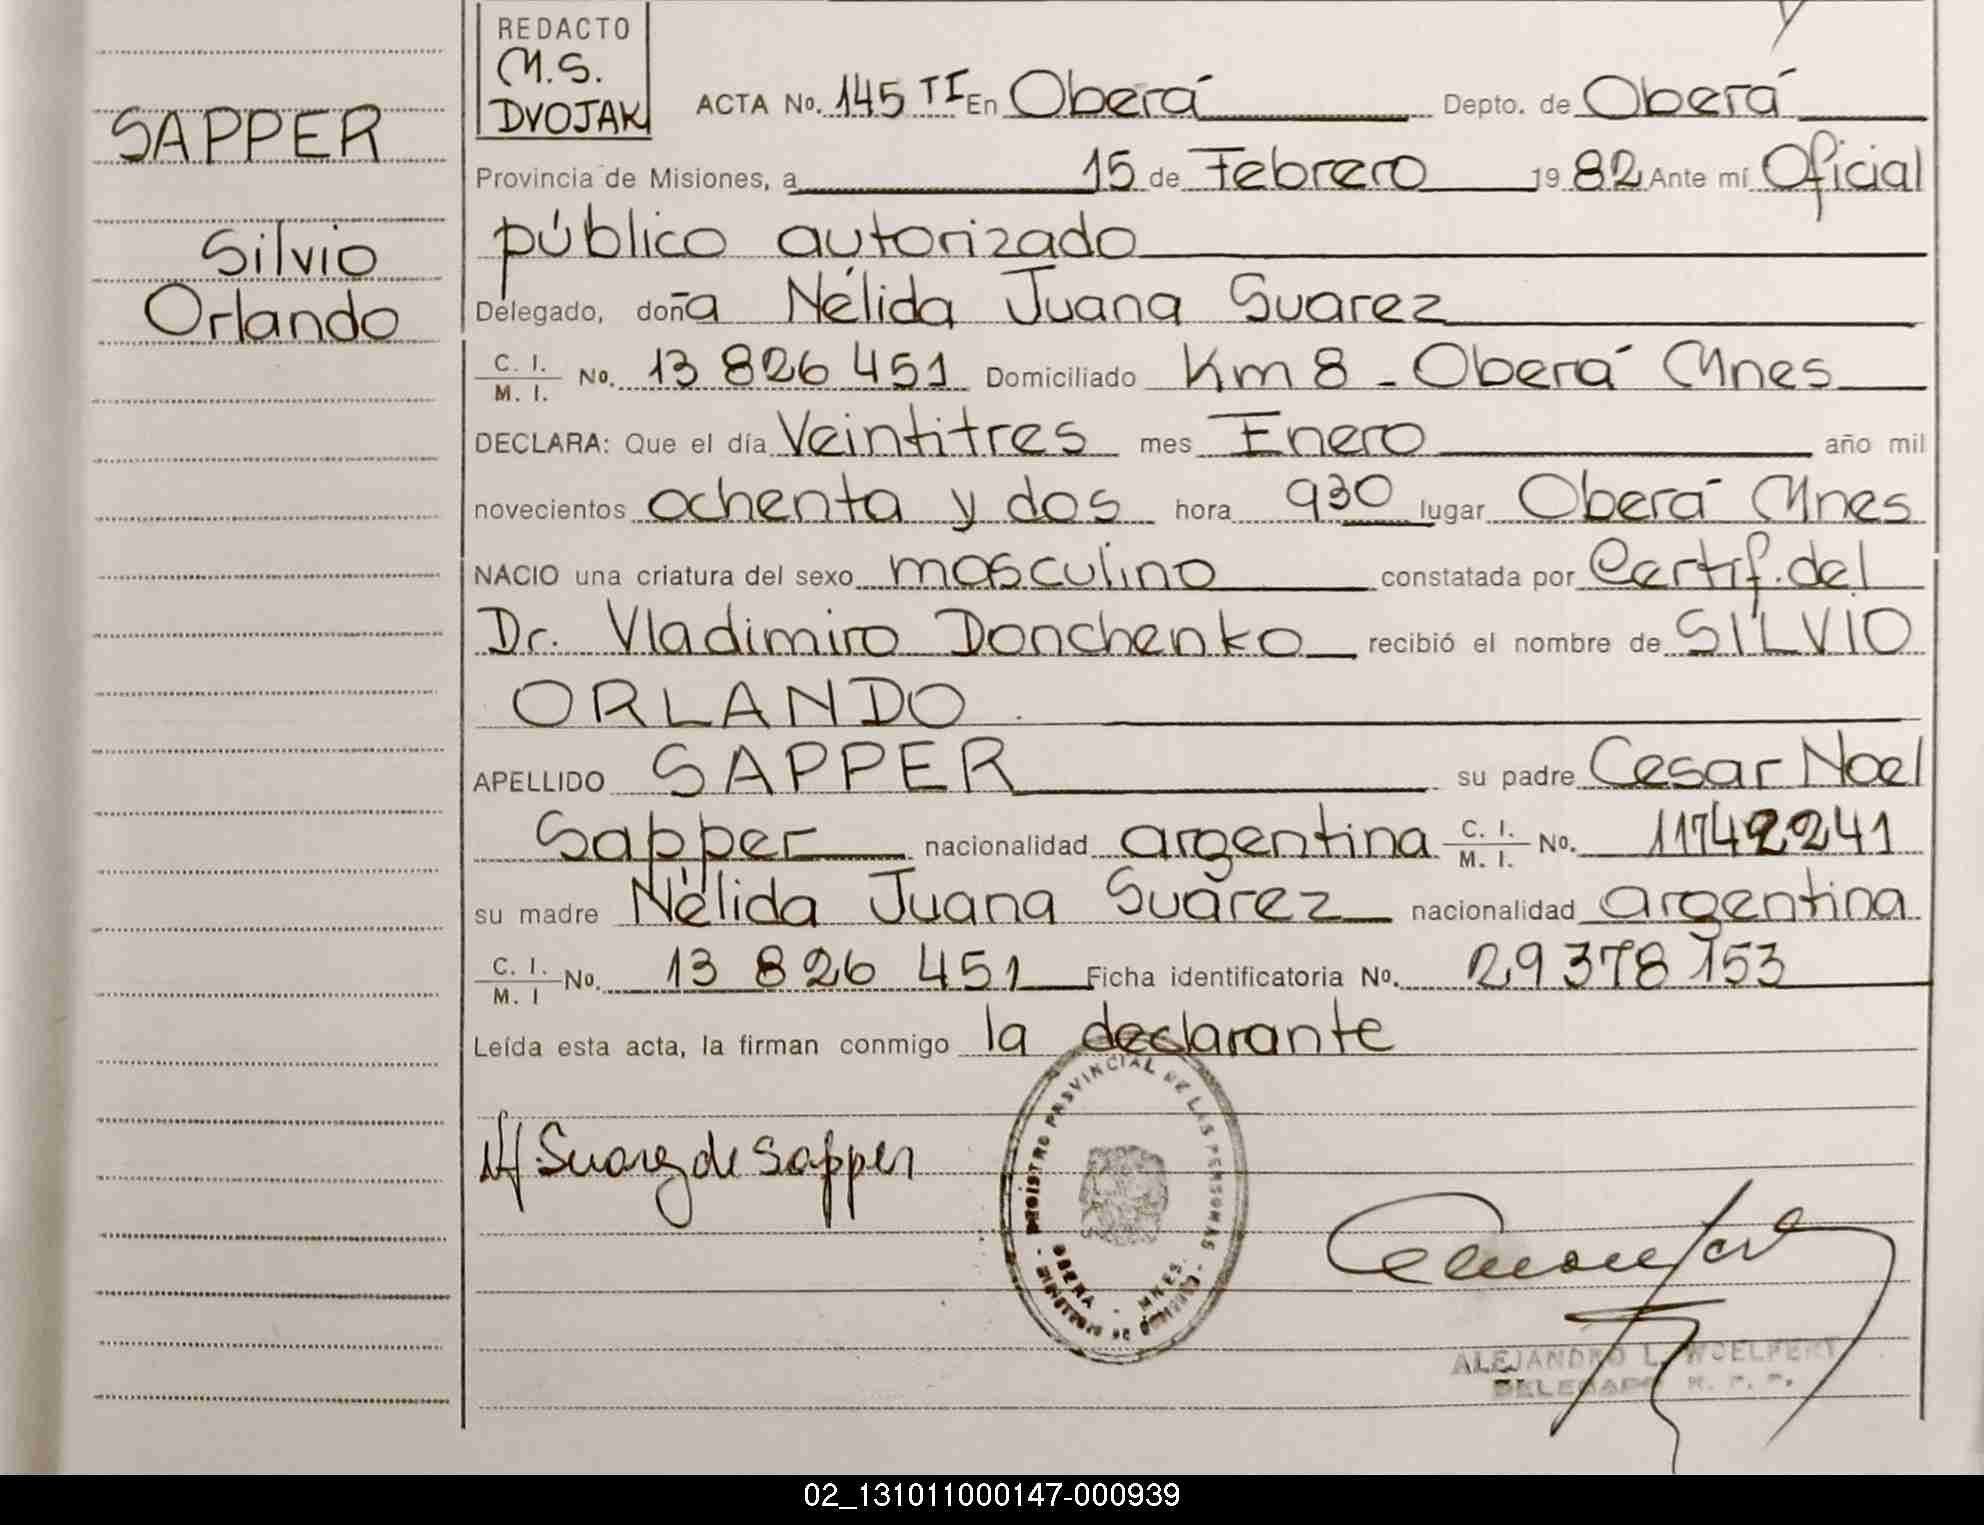 SAPPER
Silvio
Orlando
REDACTO
M.S.
DVOJAK
ACTA No. 145 TI En Oberá Depto. de Oberá
Provincia de Misiones, a 15 de Febrero 1982 Ante mí Oficial
público autorizado
Delegado, doña Nélida Juana Suarez
C. I.
M. I. No. 13 826 451 Domiciliado Km 8 - Oberá Mnes
DECLARA: Que el día Veintitres mes Enero año mil
novecientos ochenta y dos hora 930 lugar Oberá Mnes
NACIO una criatura del sexo masculino constatada por Certif. del
Dr. Vladimiro Donchenko recibió el nombre de SILVIO
ORLANDO
APELLIDO SAPPER su padre Cesar Noel
Sapper nacionalidad argentina C. I.
M. I. No. 11742241
su madre Nélida Juana Suárez nacionalidad argentina
C. I.
M. I No. 13 826 451 Ficha identificatoria No. 29378153
Leída esta acta, la firman conmigo la declarante
Suarez de Sapper
REGISTRO PROVINCIAL DE LAS PERSONAS
OBERA - MNES.
MINISTERIO DE GOBIERNO
ALEJANDRO L. WOELFERT
DELEGADO R. P. P.
02_131011000147-000939